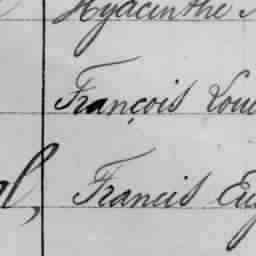 Hyacinthe
François Lou
Francis Eu